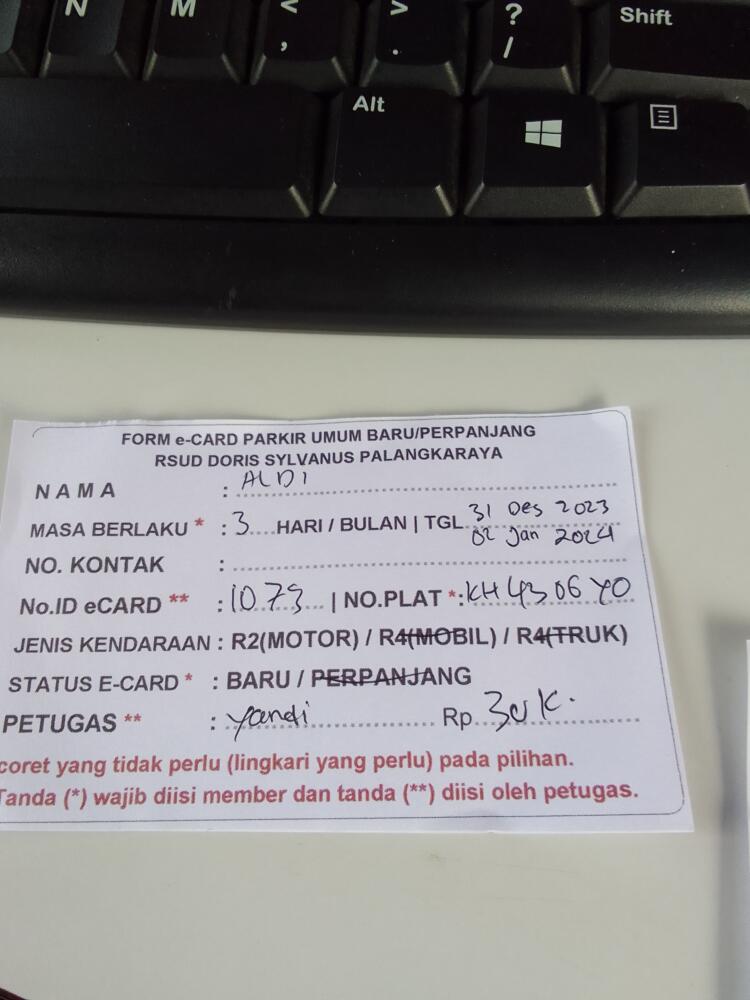 N M < , > . ? / Shift
Alt
FORM e-CARD PARKIR UMUM BARU/PERPANJANG
RSUD DORIS SYLVANUS PALANGKARAYA
NAMA : ALDI
MASA BERLAKU * : 3 HARI / BULAN | TGL 31 Des 2023
02 Jan 2024
NO. KONTAK :
No.ID eCARD ** : 1073 | NO.PLAT *: KH 4306 YO
JENIS KENDARAAN : R2(MOTOR) / R4(MOBIL) / R4(TRUK)
STATUS E-CARD * : BARU / PERPANJANG
PETUGAS ** : Yandi Rp 30K.
coret yang tidak perlu (lingkari yang perlu) pada pilihan.
Tanda (*) wajib diisi member dan tanda (**) diisi oleh petugas.